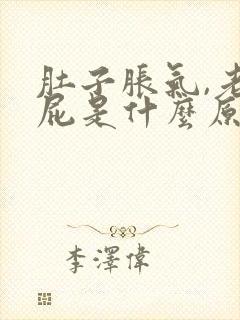 肚子脹氣,老
屁是什麼原
李澤偉